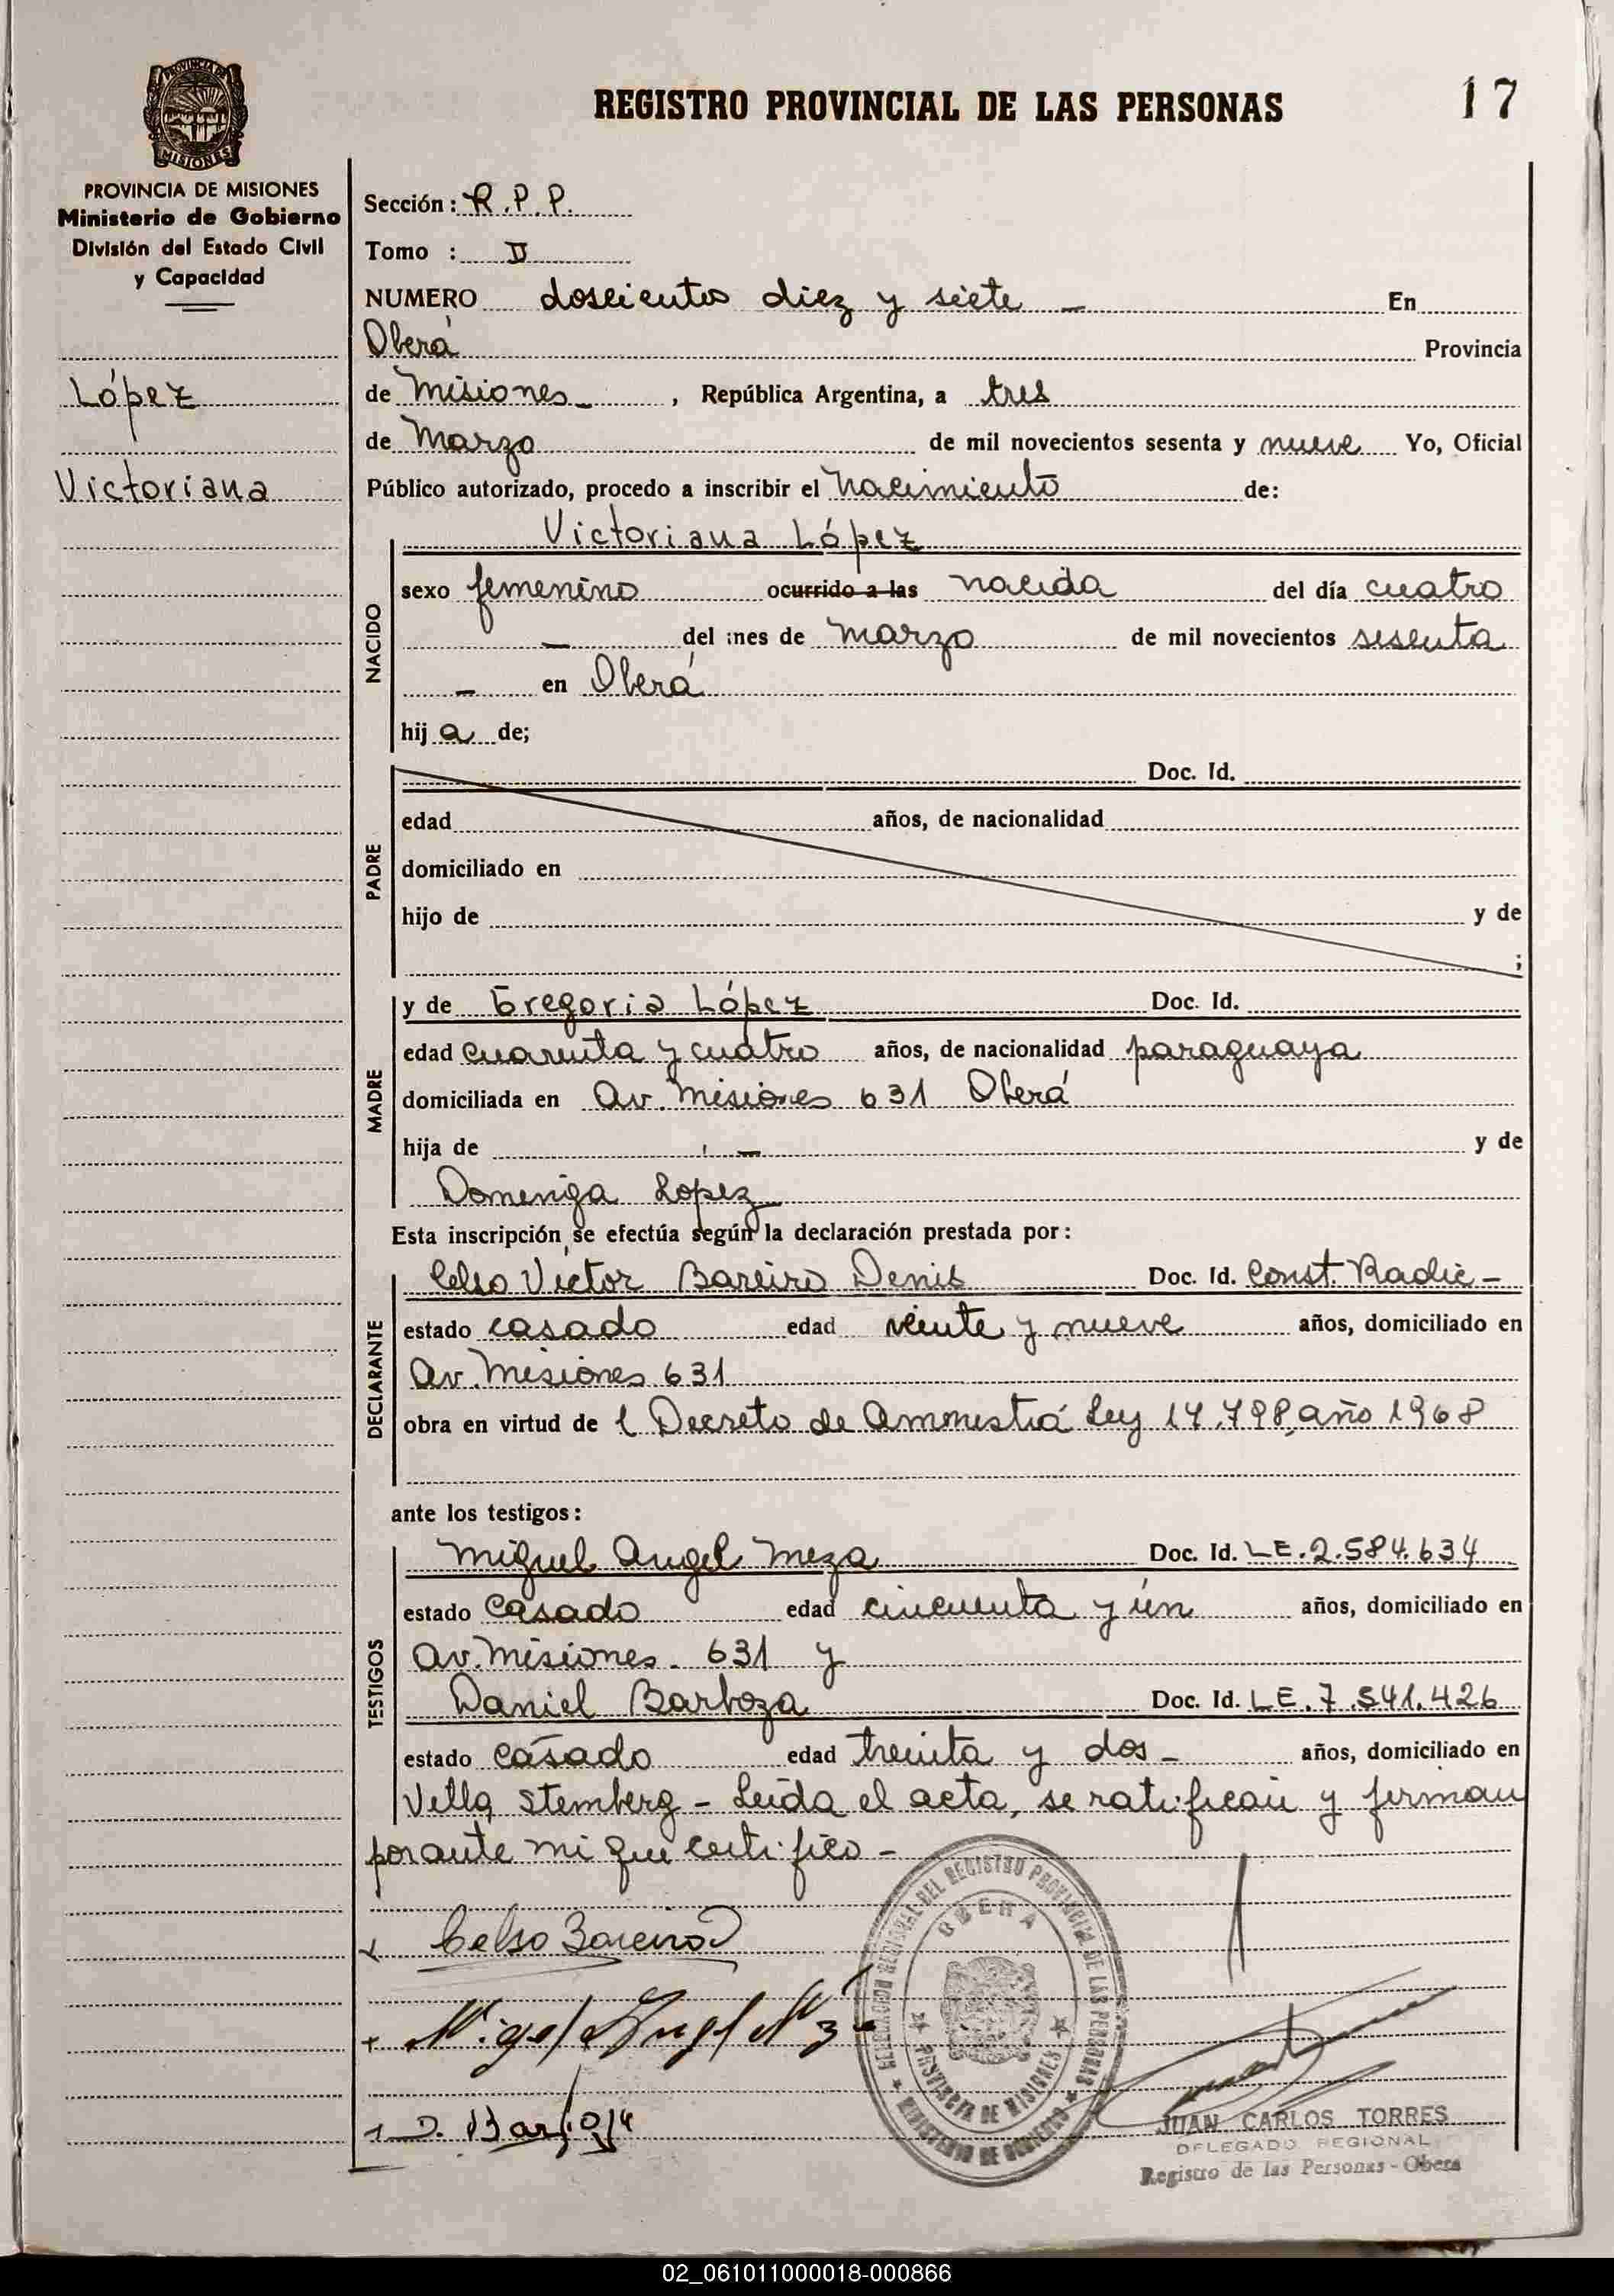 PROVINCIA DE
MISIONES
REGISTRO PROVINCIAL DE LAS PERSONAS
17
PROVINCIA DE MISIONES
Ministerio de Gobierno
División del Estado Civil
y Capacidad
López
Victoriana
Sección: R.P.P.
Tomo : II
NUMERO doscientos diez y siete - En
Oberá Provincia
de Misiones - , República Argentina, a tres
de Marzo de mil novecientos sesenta y nueve Yo, Oficial
Público autorizado, procedo a inscribir el nacimiento de:
Victoriana López
NACIDO
sexo femenino ocurrido a las nacida del día cuatro
- del mes de marzo de mil novecientos sesenta
- en Oberá
hij a de;
PADRE
Doc. Id.
edad años, de nacionalidad
domiciliado en
hijo de y de
;
MADRE
y de Gregoria López Doc. Id.
edad cuarenta y cuatro años, de nacionalidad paraguaya
domiciliada en Av. Misiones 631 Oberá
hija de - y de
Domeniga Lopez
Esta inscripción se efectúa según la declaración prestada por:
DECLARANTE
Celso Víctor Bareiro Denis Doc. Id. Const. Radic-
estado casado edad veinte y nueve años, domiciliado en
Av. Misiones 631
obra en virtud de l Decreto de Ammestiá Ley 17.798, año 1968
ante los testigos:
TESTIGOS
Miguel Angel Meza Doc. Id. LE.2.584.634
estado casado edad cincuenta y ún años, domiciliado en
Av. Misiones - 631 y
Daniel Barboza Doc. Id. LE.7.541.426
estado casado edad treinta y dos - años, domiciliado en
Villa Stemberg - Leída el acta, se ratifican y firman
por ante mi que certifico -
Celso Bareiro
DELEGACION REGIONAL DEL REGISTRO PROVINCIAL DE LAS PERSONAS
OBERA
PROVINCIA DE MISIONES
MINISTERIO DE GOBIERNO
JUAN CARLOS TORRES
DELEGADO REGIONAL
Registro de las Personas - Obera
02_061011000018-000866